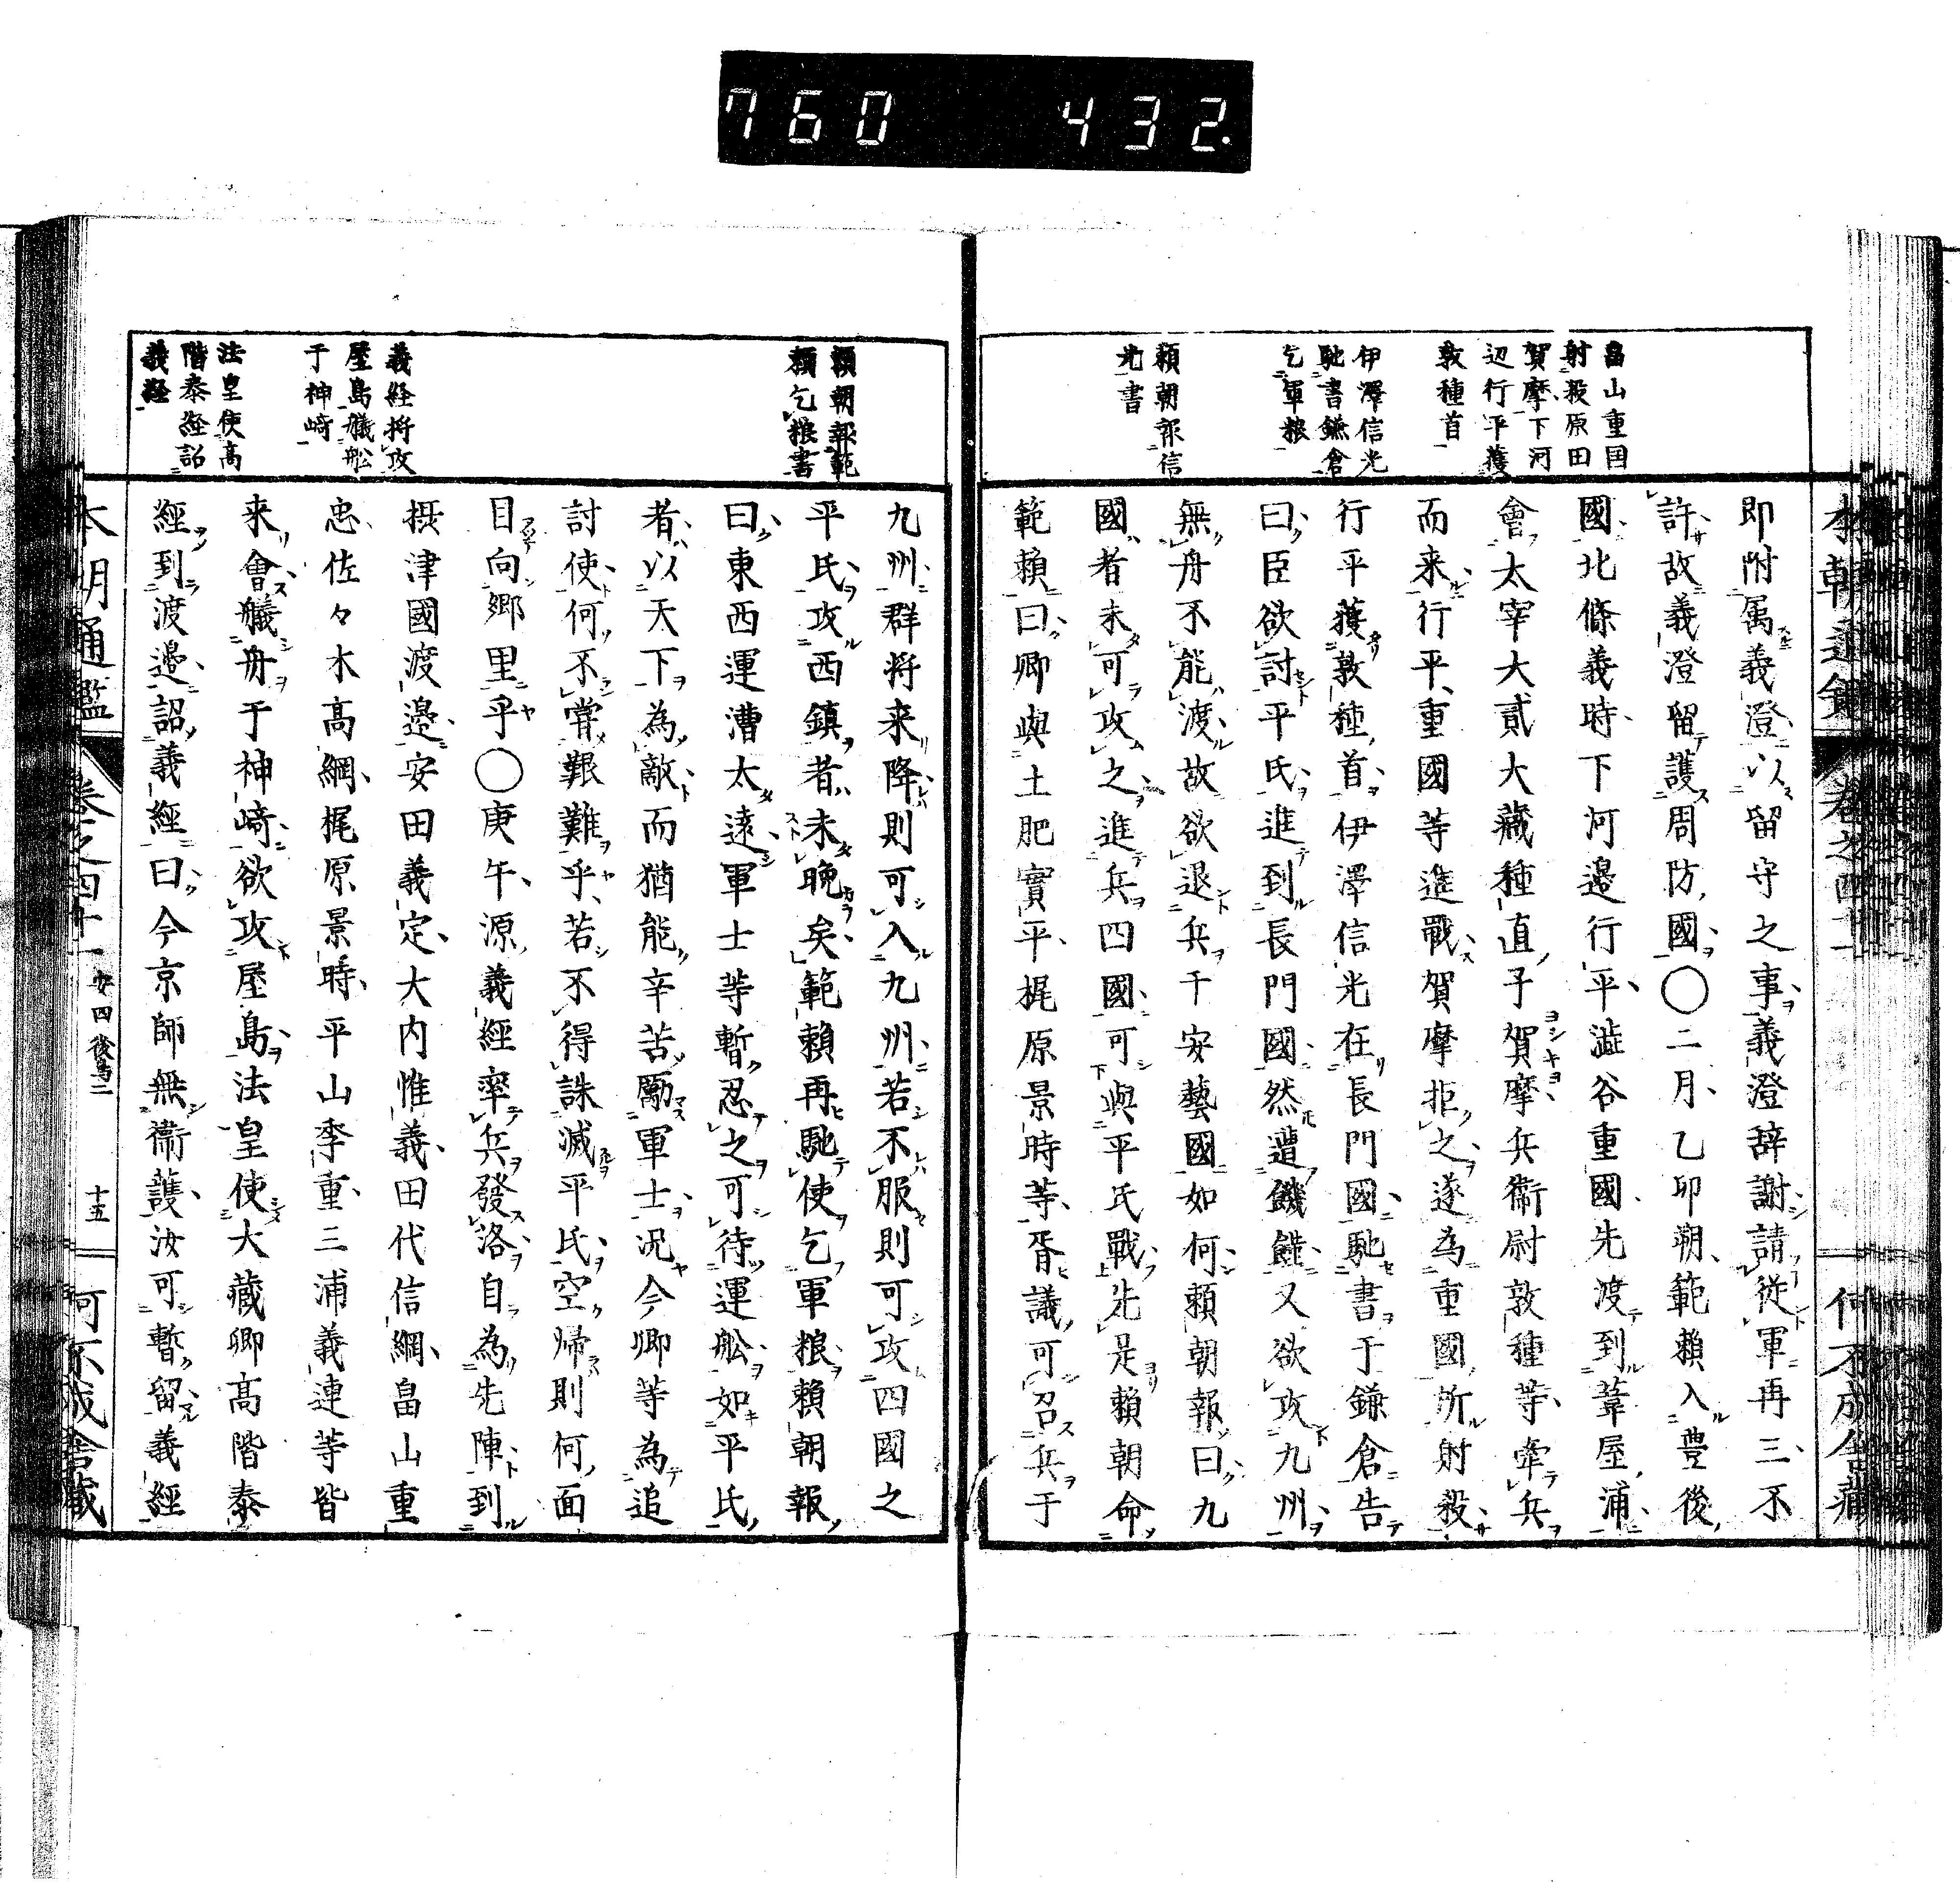 760 432.
畠山重国
射殺原田
賀摩下河
辺行平獲
敦種首
伊澤信光
馳書鎌倉
乞軍粮
頼朝報信
光書
即附属義澄以留守之事義澄辞謝請従軍再三不
許故義澄留護周防國〇二月乙卯朔範頼入豊後
國北條義時下河邉行平澁谷重國先渡到葦屋浦
會太宰大貳大藏種直子賀摩兵衞尉敦種等牽兵
而来行平重國等進戰賀摩拒之遂為重國所射殺
行平獲敦種首伊澤信光在長門國馳書于鎌倉告
曰臣欲討平氏進到長門國然遭饑饉又欲攻九州
無舟不能渡故欲退兵于安藝國如何頼朝報曰九
國者未可攻之進兵四國可與平氏戰先是頼朝命
範頼曰卿與土肥實平梶原景時等胥議可召兵于
頼朝報範
頼乞粮書
義経将攻
屋島艤舩
于神崎
法皇使高
階泰経詔
義経
九州群将来降則可入九州若不服則可攻四國之
平氏攻西鎮者未晩矣範頼再馳使乞軍粮頼朝報
曰東西運漕太遠軍士等暫忍之可待運舩如平氏
者以天下為敵而猶能辛苦勵軍士况今卿等為追
討使何不嘗艱難乎若不得誅滅平氏空帰則何面
目向郷里乎〇庚午源義經率兵發洛自為先陣到
摂津國渡邉安田義定大内惟義田代信綱畠山重
忠佐々木高綱梶原景時平山季重三浦義連等皆
来會艤舟于神﨑欲攻屋島法皇使大藏卿高階泰
經到渡邉詔義經曰今京師無衞護汝可暫留義經
本朝通鑑 卷之四十一 安四後鳥二 十五 何不成舎蔵